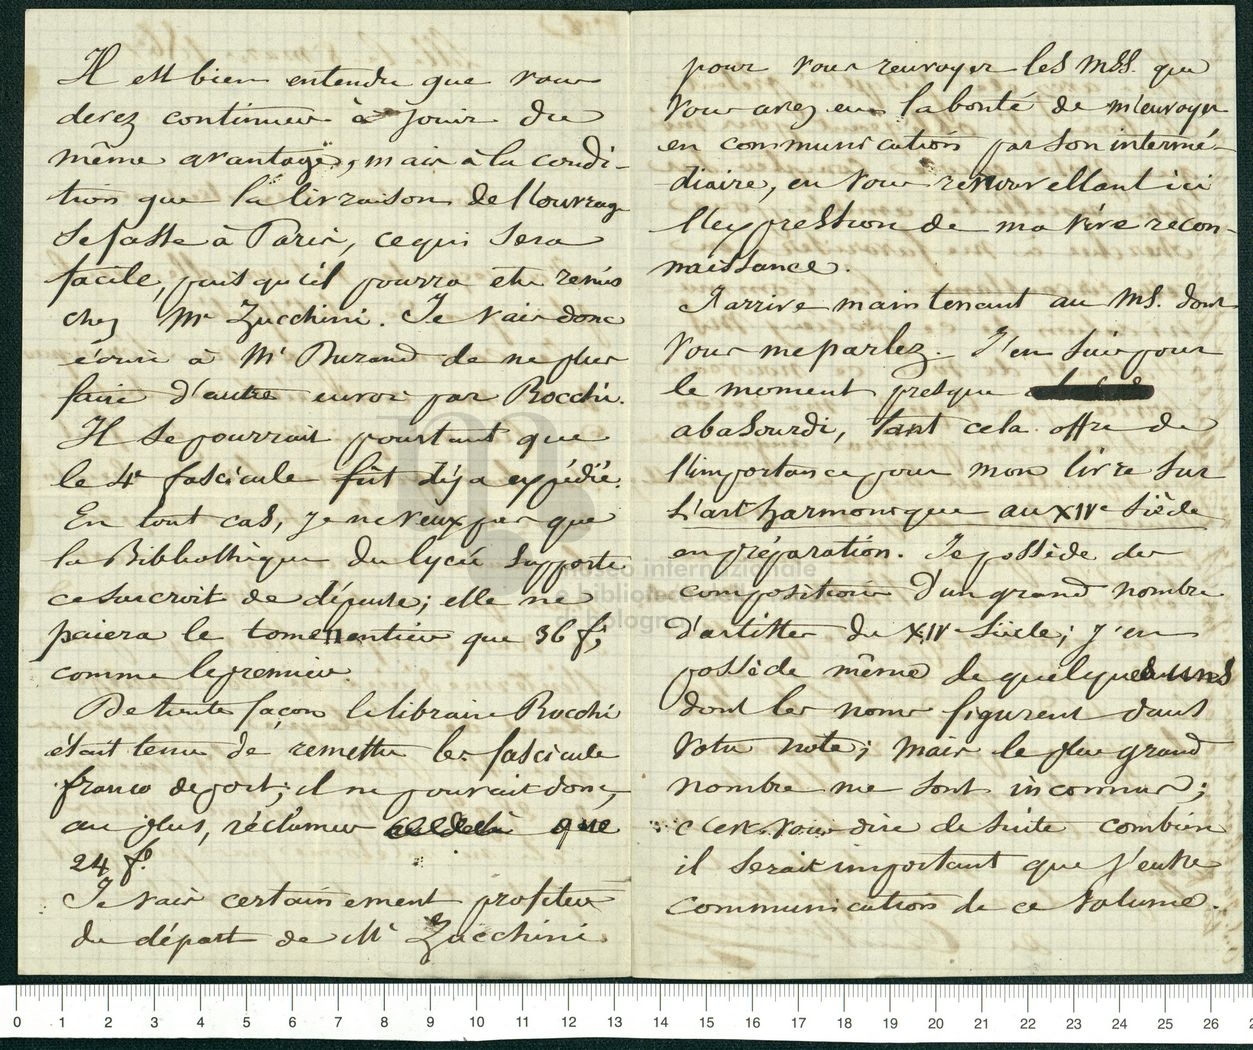 Il est bien entendu que vous
derez continuer à jouir du
même avantage, mais à la condi-
tion que la livraison de l'ouvrage
se fasse à Paris, ce qui sera
facile, puisqu'il pourra etre remis
chez Mr Zucchini. Je vais donc
écrire à Mr Durand de ne plus
faire d'autre envoi par Rocchi.
Il se pourrait pourtant que
le 4e fascicule fût déjà expédié.
En tout cas, je ne veux pas que
la Bibliothèque du lycée supporte
ce surcroit de dépense; elle ne
paiera le tome II entier que 36 f;
comme le premier.
De toute façon le libraire Rocchi
était tenu de remettre les fascicule
franco de port; il ne pouvait donc,
au plus, réclamer que
24 f.
Je vais certainement profiter
du départ de Mr Zucchini
pour vous renvoyer les MSS. que
vous avez eu la bonté de m'envoyer
en communication par son intermé-
diaire, en vous renouvellant ici
l'expression de ma vive recon-
naissance.
J'arrive maintenant au MS. dont
vous me parlez. J'en suis pour
le moment presque
abasourdi, tant cela offre de
l'importance pour mon livre sur
L'art harmonique au XIVe Siècle
en préparation. Je possède des
compositions d'un grand nombre
d'artistes du XIVe Siècle; j'en
possède même de quelques uns
dont les noms figurent dans
votre note; mais le plus grand
nombre me sont inconnus;
c'est vous dire de suite combien
il serait important que j'eusse
communication de ce volume.
museo internazionale
e biblioteca
di bologna
0 1 2 3 4 5 6 7 8 9 10 11 12 13 14 15 16 17 18 19 20 21 22 23 24 25 26